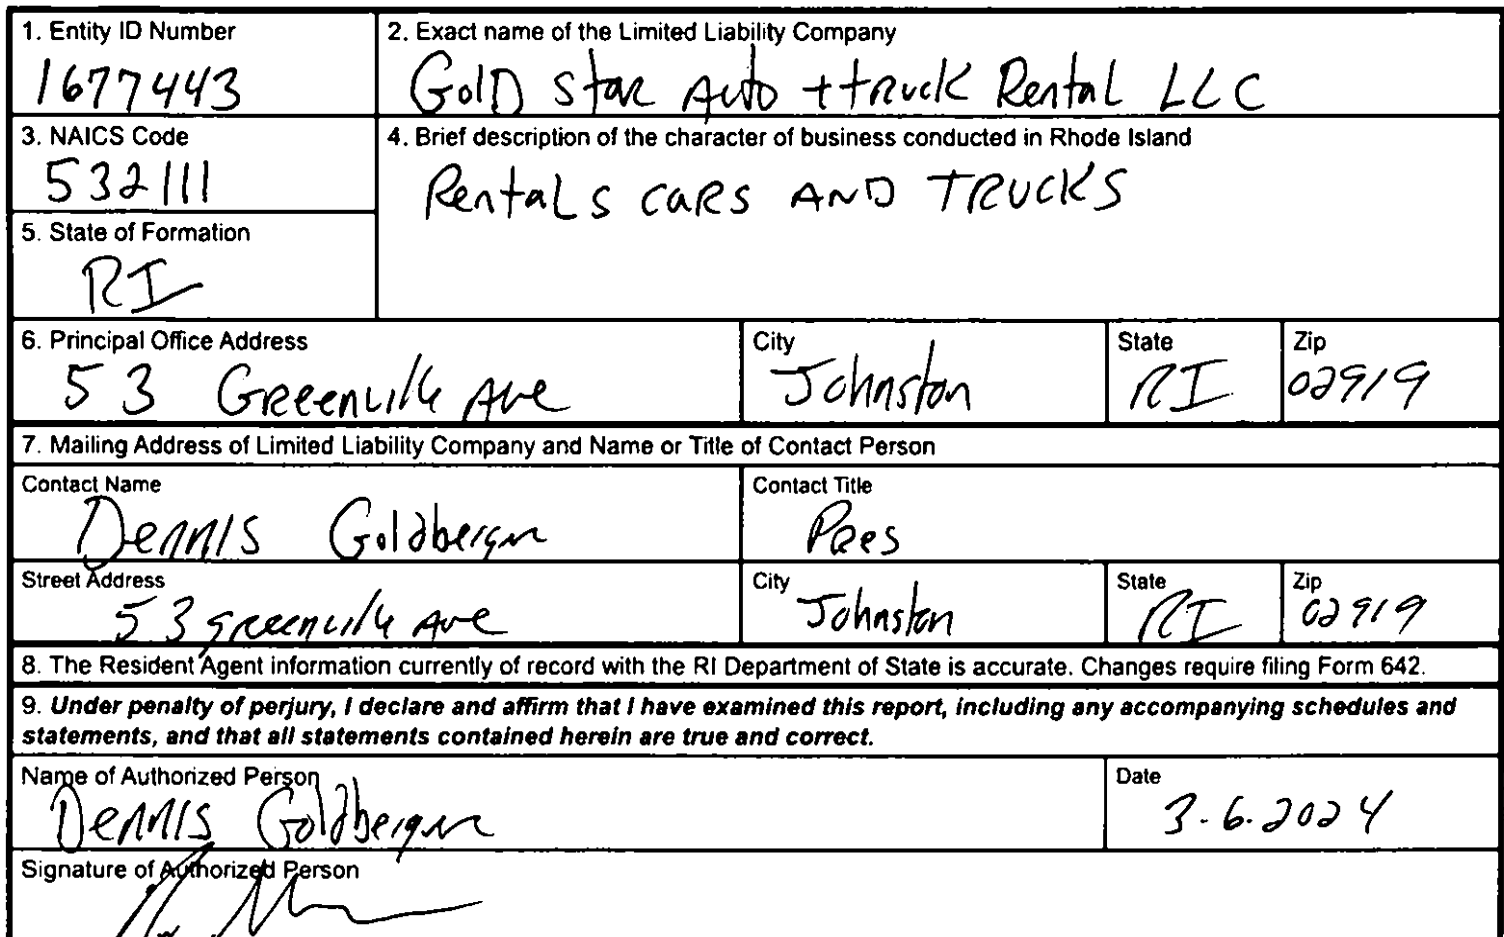 1. Entity ID Number
1677443
2. Exact name of the Limited Liability Company
GolD Star Auto + truck Rental LLC
3. NAICS Code
532111
4. Brief description of the character of business conducted in Rhode Island
Rentals cars AND TRUCKS
5. State of Formation
RI
6. Principal Office Address
53 Greenville Ave
City
Johnston
State
RI
Zip
02919
7. Mailing Address of Limited Liability Company and Name or Title of Contact Person
Contact Name
Dennis Goldberger
Contact Title
Pres
Street Address
53 greenville Ave
City
Johnston
State
RI
Zip
02919
8. The Resident Agent information currently of record with the RI Department of State is accurate. Changes require filing Form 642.
9. Under penalty of perjury, I declare and affirm that I have examined this report, including any accompanying schedules and
statements, and that all statements contained herein are true and correct.
Name of Authorized Person
Dennis Goldberger
Date
3.6.2024
Signature of Authorized Person